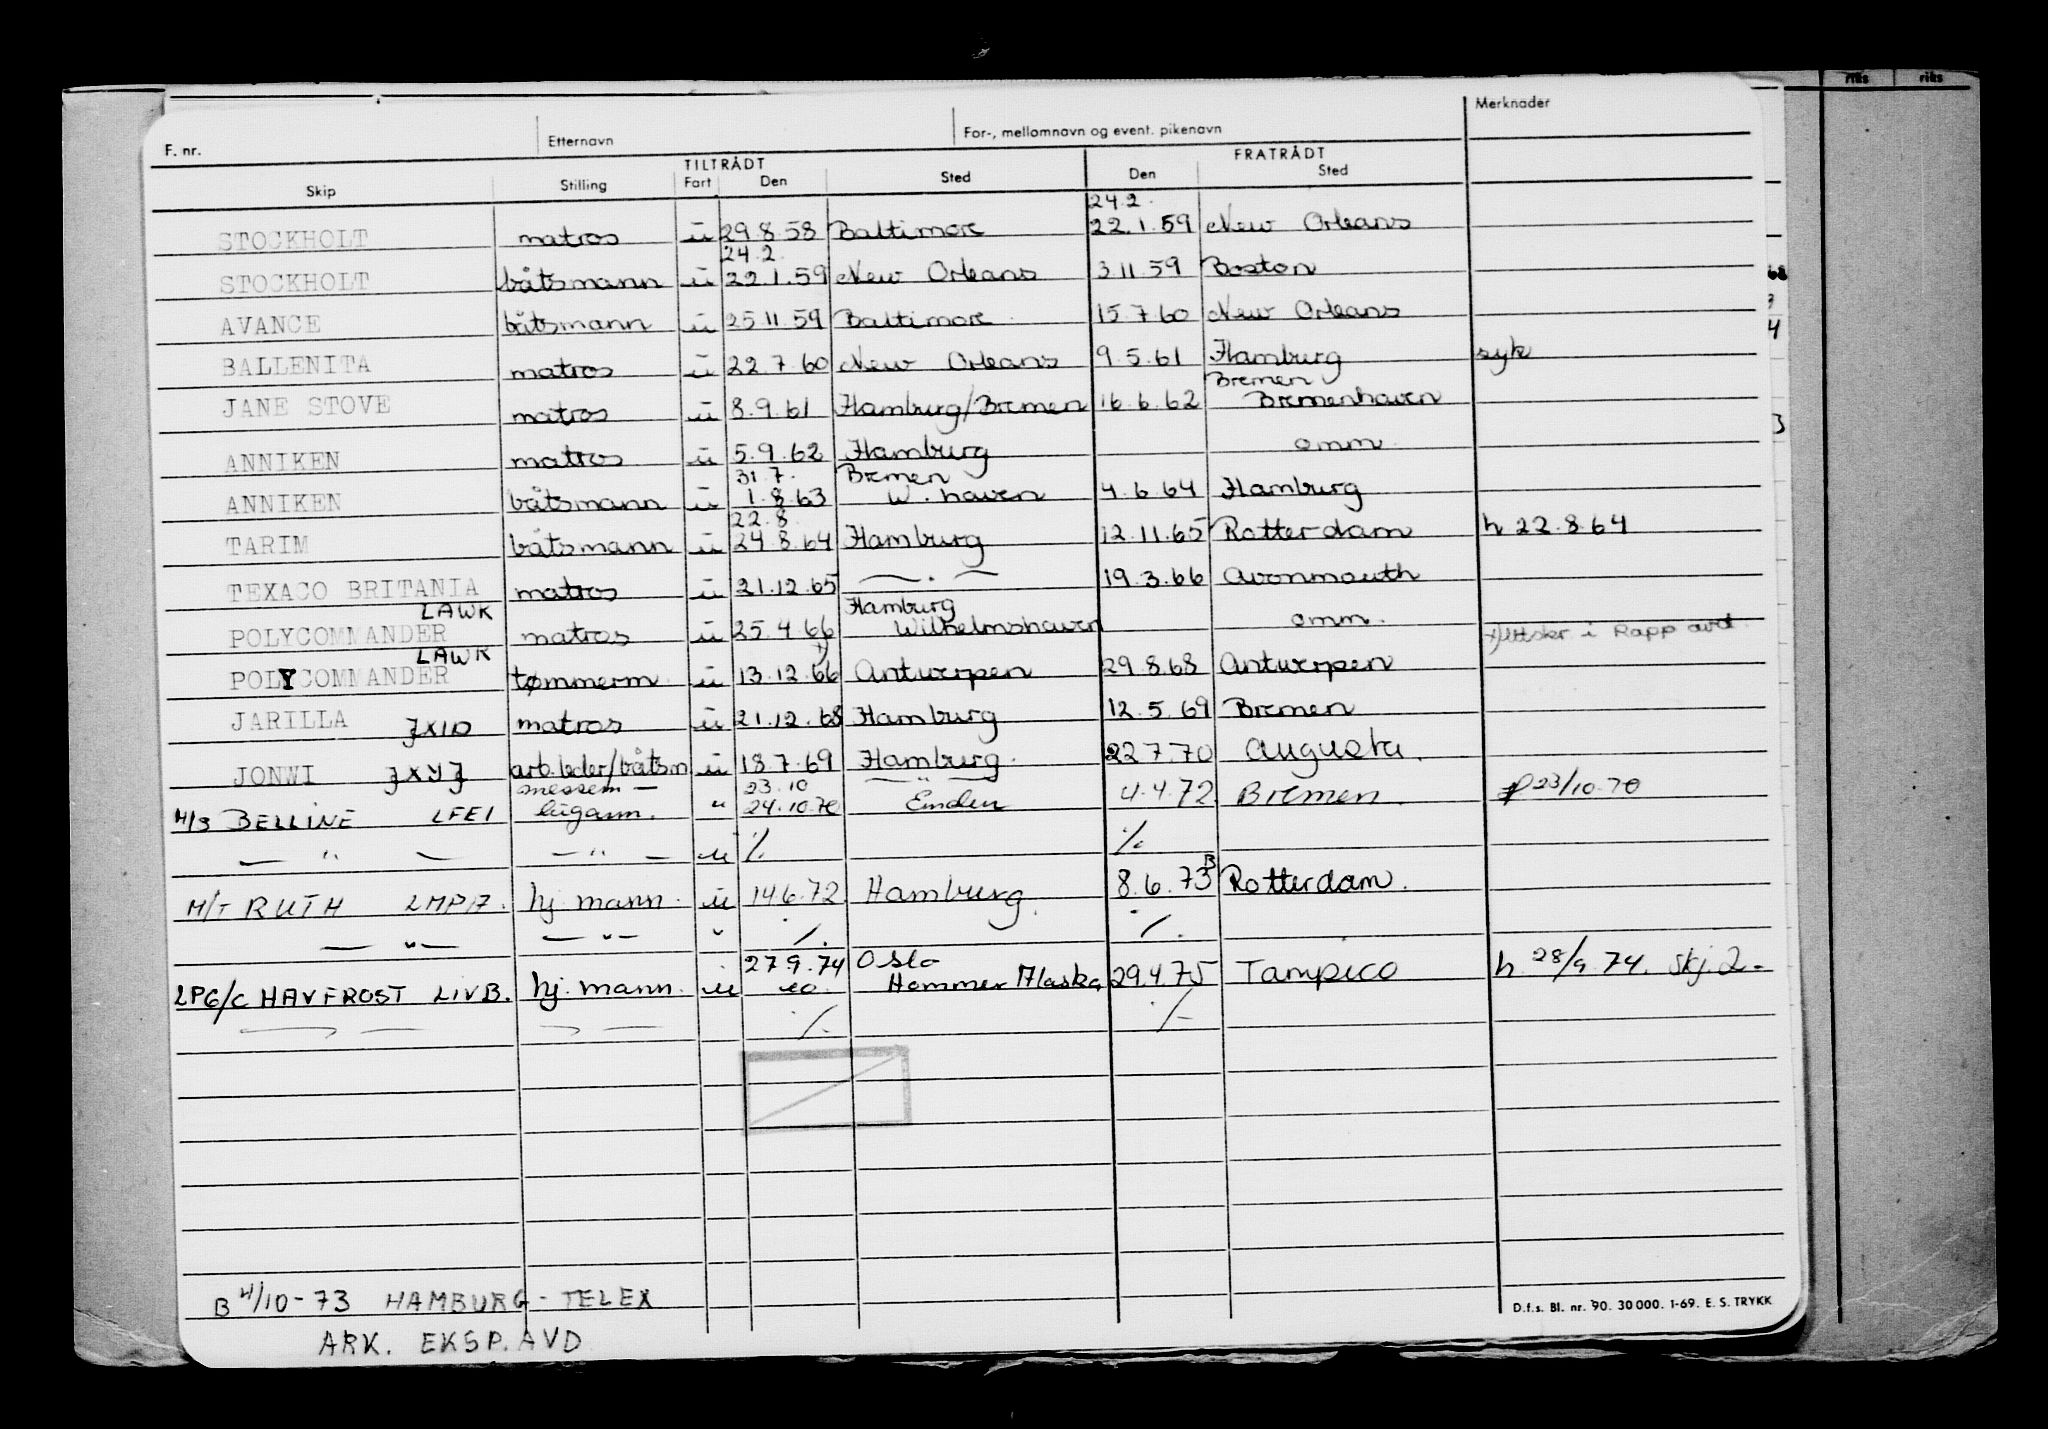 riks riks
Merknader
F. nr. Etternavn For-, mellomnavn og event. pikenavn
TILTRÅDT FRATRÅDT
Skip Stilling Fart Den Sted Den Sted
24.2.
STOCKHOLT matros u 29.8.58 Baltimore 22.1.59 New Orleans
24.2.
STOCKHOLT båtsmann u 22.1.59 New Orleans 3.11.59 Boston
AVANCE båtsmann u 25.11.59 Baltimore 15.7.60 New Orleans
BALLENITA matros u 22.7.60 New Orleans 9.5.61 Hamburg syk
Bremen
JANE STOVE matros u 8.9.61 Hamburg/Bremen 16.6.62 Bremenhaven
ANNIKEN matros u 5.9.62 Hamburg omm
31.7. Bremen
ANNIKEN båtsmann u 1.8.63 W.haven 4.6.64 Hamburg
22.8.
TARIM båtsmann u 24.8.64 Hamburg 12.11.65 Rotterdam h 22.8.64
TEXACO BRITANIA matros u 21.12.65 — " — 19.3.66 Avonmouth
LAWK Hamburg
POLYCOMMANDER matros u 25.4.66 Wilhelmshaven omm. x) Utskr. i Rapp avd.
LAWK x)
POLYCOMMANDER tømmerm. u 13.12.66 Antwerpen 29.8.68 Antwerpen
JARILLA JXID matros u 21.12.68 Hamburg 12.5.69 Bremen
JONWI JXYJ arb.leder/båtsm u 18.7.69 Hamburg. 22.7.70 Augusta.
messem — 23.10 — " —
M/S BELLINE LFEI " 24.10.70 Emden 4.4.72 Bremen. 23/10.70
— " — — " — u ./. ./.
M/T RUTH LMPA. hj. mann. u 14.6.72 Hamburg. 8.6.73 B Rotterdam.
— " — — " — " ./. ./.
27.9.74 Oslo
LPG/C HAVFROST LIVB. hj. mann. u Hammer Alaska 29.4.75 Tampico h 28/9.74. Skj. 2.
— " — — " — ./. ./.
B 4/10-73 HAMBURG - TELEX
ARK. EKSP. AVD
D.f.s. Bl. nr. 90. 30 000. 1-69. E. S. TRYKK